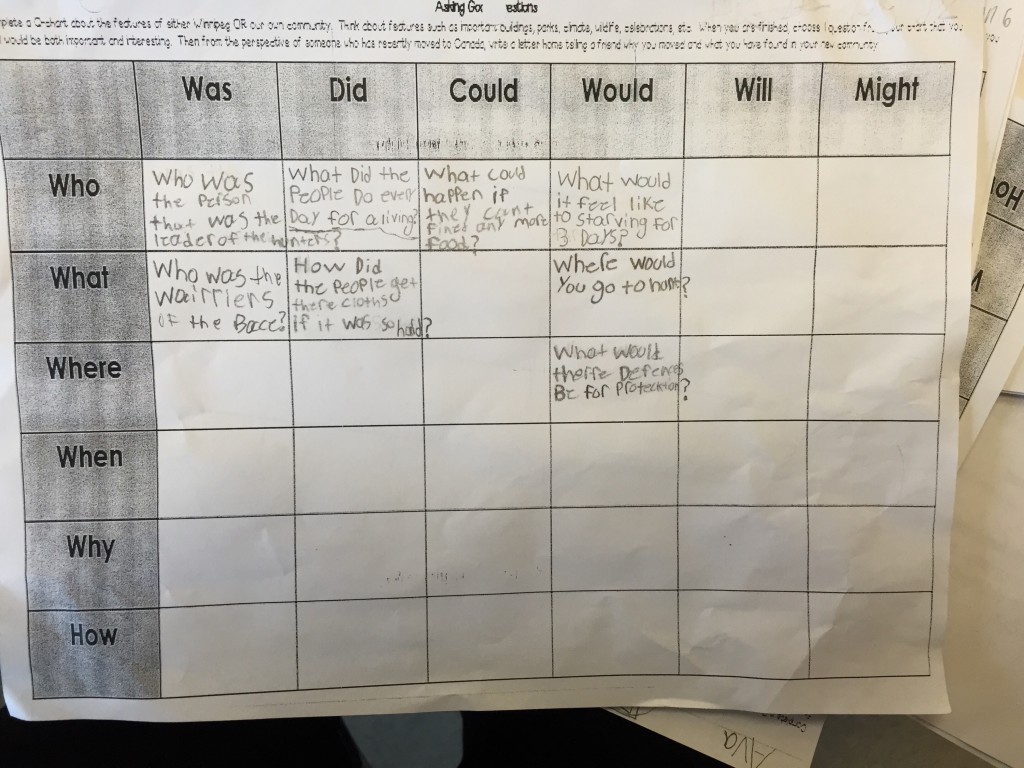 Asking Go estions
plete a Q-chart about the features of either Winnipeg OR our own community. Think about features such as important buildings, parks, climate, wildlife, celebrations, etc. When you are finished, choose 1 question your chart that you
would be both important and interesting. Then from the perspective of someone who has recently moved to Canada, write a letter home telling a friend why you moved and what you have found in your new community
Was Did Could Would Will Might
Who
Who was
the Person
that was the
leader of the hunters?
What Did the
People Do every
Day for a living?
What could
happen if
they cant
find any more
food?
What would
it feel like
to starving for
3 Days?
What
Who was the
wairriers
of the Bacce?
How Did
the People get
there cloths
if it was so hold?
Where would
You go to hunt?
Where
What would
Defence
Be for Protecktion?
When
Why
How
Ava